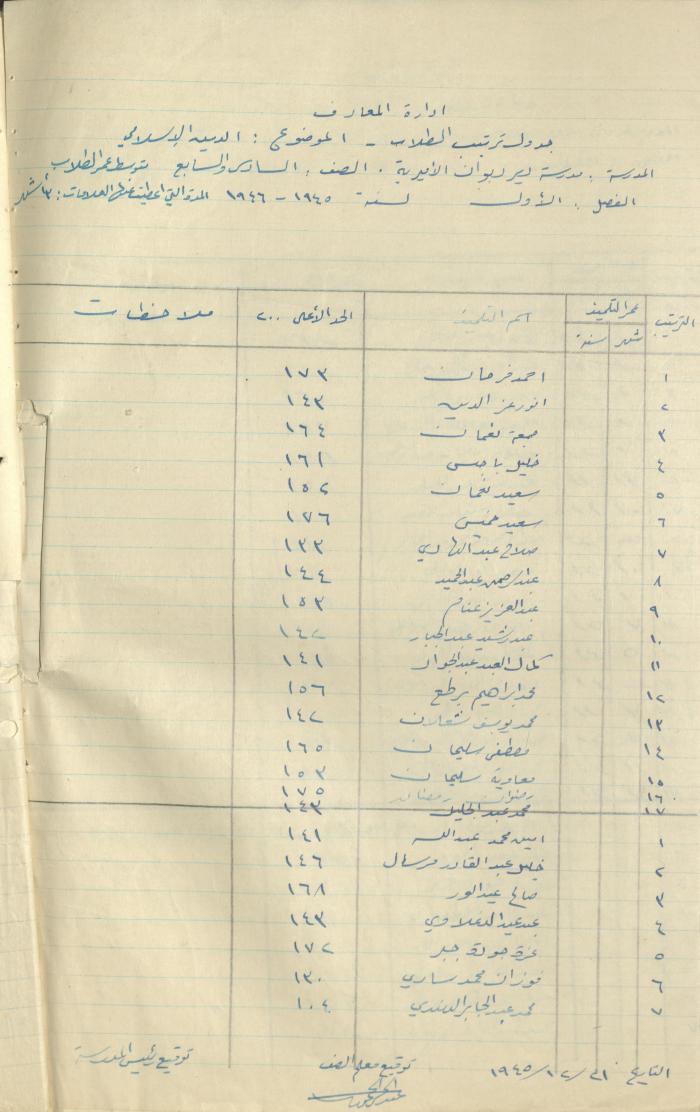 ادارة المعارف
جدول ترتيب الطلاب - الموضوع : الدين الإسلامي
المدرسة : مدرسة دير ديوان الأميرية . الصف : السادس والسابع متوسط عمر الطلاب
الفصل : الأول لسنة ١٩٤٥ - ١٩٤٦ المدة التي اعطيت عنها العلامات : ٣ أشهر
الترتيب عمر التلميذ اسم التلميذ الحد الأعلى ٢٠٠ ملاحظات
شهر سنة
١ احمد فرحان ١٧٣
٢ انور عز الدين ١٤٣
٣ جمعة نعمان ١٦٤
٤ خليل باجس ١٦١
٥ سعيد نعمان ١٥٢
٦ سعيد خميس ١٧٦
٧ صلاح عبد الهادي ١٣٣
٨ عبد الرحمن عبد الحميد ١٤٤
٩ عبد العزيز غنام ١٥٣
١٠ عبد رشيد عبد الجبار ١٤٢
١١ كمال العبد عبد الجواد ١٤١
١٢ محمد ابراهيم ١٥٦
١٣ محمد يوسف شعلان ١٤٢
١٤ مصطفى سليمان ١٦٥
١٥ معاوية سليمان ١٥٣
١٦ رضوان رمضان ١٧٥
١٧ محمد عبد الجليل ١٤٣
١ امين محمد عبد الله ١٤١
٢ خليل عبد القادر مرسال ١٤٦
٣ صالح ١٦٨
٤ عبد ١٤٣
٥ عزة جودة جبر ١٧٢
٦ فوزان محمد ساري ١٣٠
٧ محمد عبد الجابر الهندي ١٠٤
التاريخ ٢١/١٢/١٩٤٥ توقيع معلم الصف توقيع رئيس المدرسة